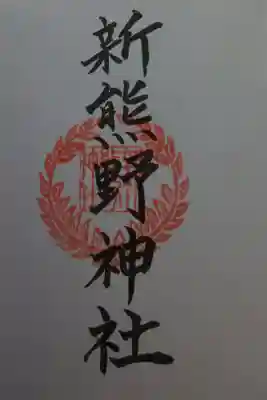 新熊野神社